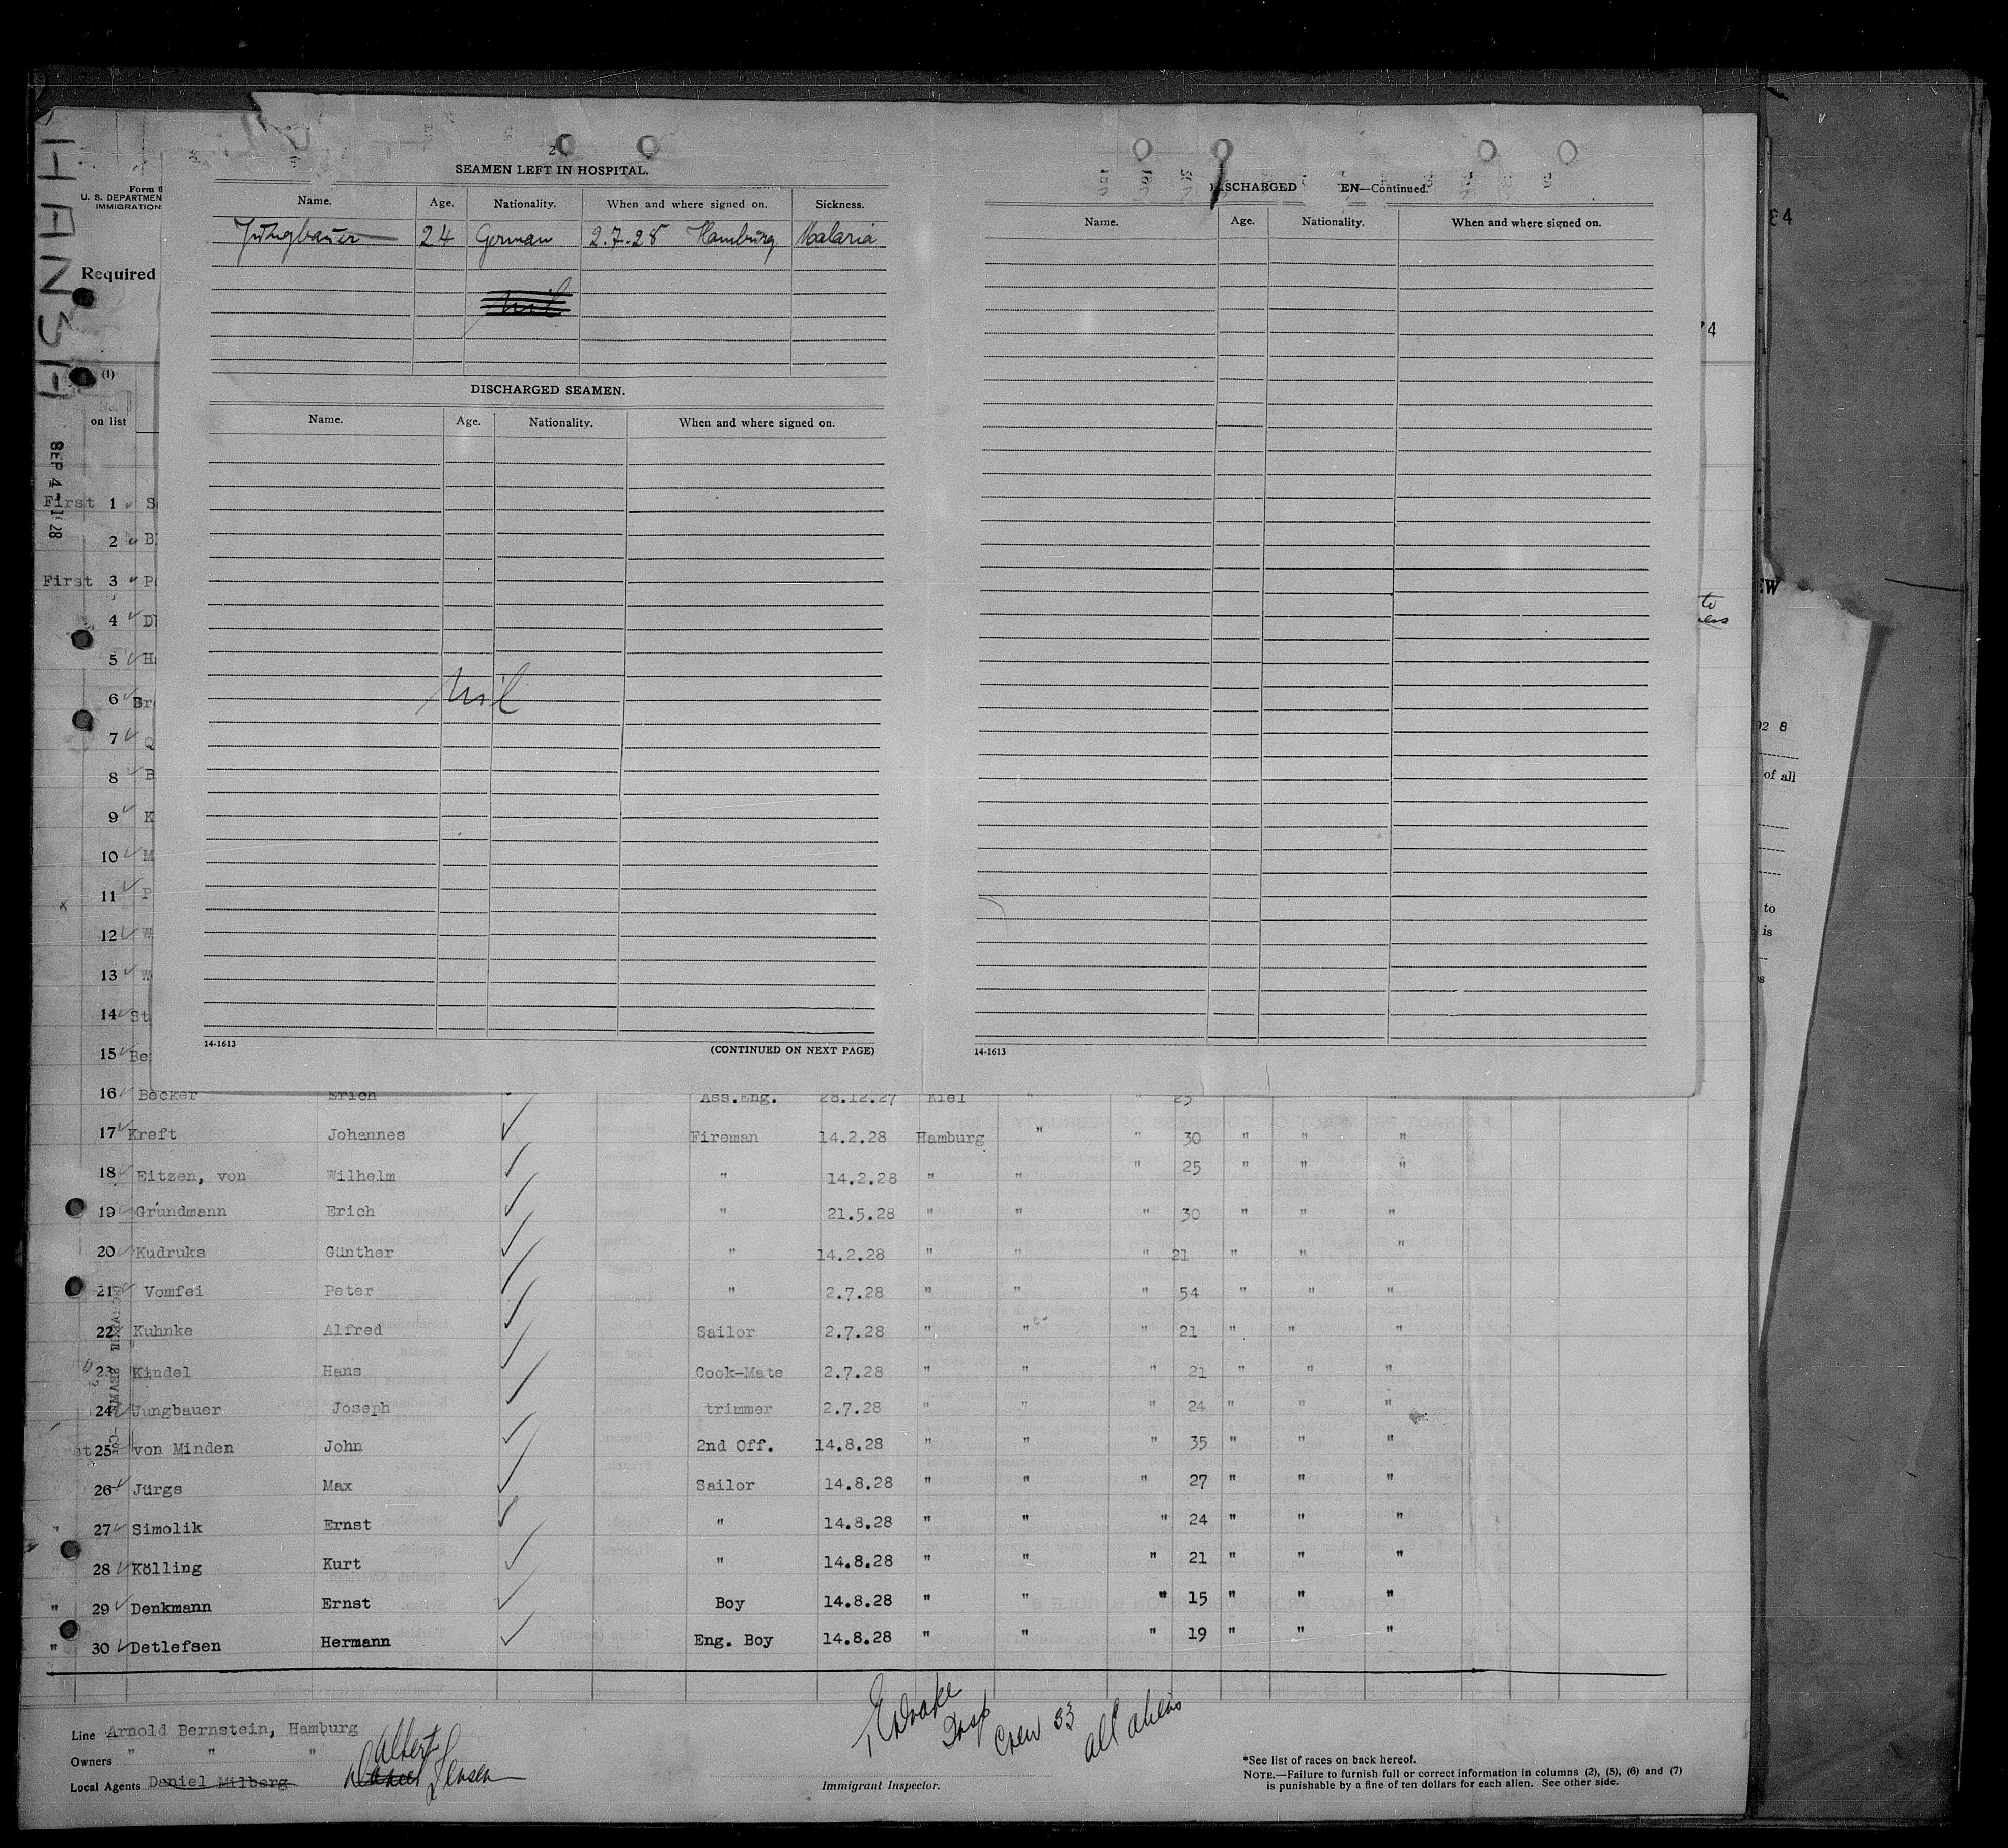 2
SEAMEN LEFT IN HOSPITAL.
Name. Age. Nationality. When and where signed on. Sickness.
Jungbauer 24 German 2.7.28 Hamburg Malaria
nil
DISCHARGED SEAMEN.
Name. Age. Nationality. When and where signed on.
nil
14-1613 (CONTINUED ON NEXT PAGE)
DISCHARGED EN—Continued.
Name. Age. Nationality. When and where signed on.
14-1613
Form 6
U. S. DEPARTMEN
IMMIGRATION
HANSA
Required
(1)
on list
SEP 4 1928
First 1 S
2 B
First 3 P
4 D
5 H
6 Br
7 Q
8 B
9 K
10 M
11 P
x
12 W
13 W
14 St
15 Be
16 Becker Erich Ass.Eng. 28.12.27 Kiel " " 25 " " "
17 Kreft Johannes Fireman 14.2.28 Hamburg " " 30 " " "
18 Eitzen, von Wilhelm " 14.2.28 " " " 25 " " "
19 Grundmann Erich " 21.5.28 " " " 30 " " "
20 Kudruks Günther " 14.2.28 " " " 21 " " "
21 Vomfei Peter " 2.7.28 " " " 54 " " "
22 Kuhnke Alfred Sailor 2.7.28 " " " 21 " " "
" 23 Kindel Hans Cook-Mate 2.7.28 " " " 21 " " "
24 Jungbauer Joseph trimmer 2.7.28 " " " 24 " " "
25 von Minden John 2nd Off. 14.8.28 " " " 35 " " "
" 26 Jürgs Max Sailor 14.8.28 " " " 27 " " "
" 27 Simolik Ernst " 14.8.28 " " " 24 " " "
28 Kölling Kurt " 14.8.28 " " " 21 " " "
" 29 Denkmann Ernst Boy 14.8.28 " " " 15 " " "
" 30 Detlefsen Hermann Eng. Boy 14.8.28 " " " 19 " " "
Line Arnold Bernstein, Hamburg
Owners " " "
Local Agents Daniel Milberg
Albert Jensen
Drake
Insp
Crew 33
all aliens
Immigrant Inspector.
*See list of races on back hereof.
NOTE.—Failure to furnish full or correct information in columns (2), (5), (6) and (7)
is punishable by a fine of ten dollars for each alien. See other side.
84
74
to
EW
92 8
of all
to
is
s